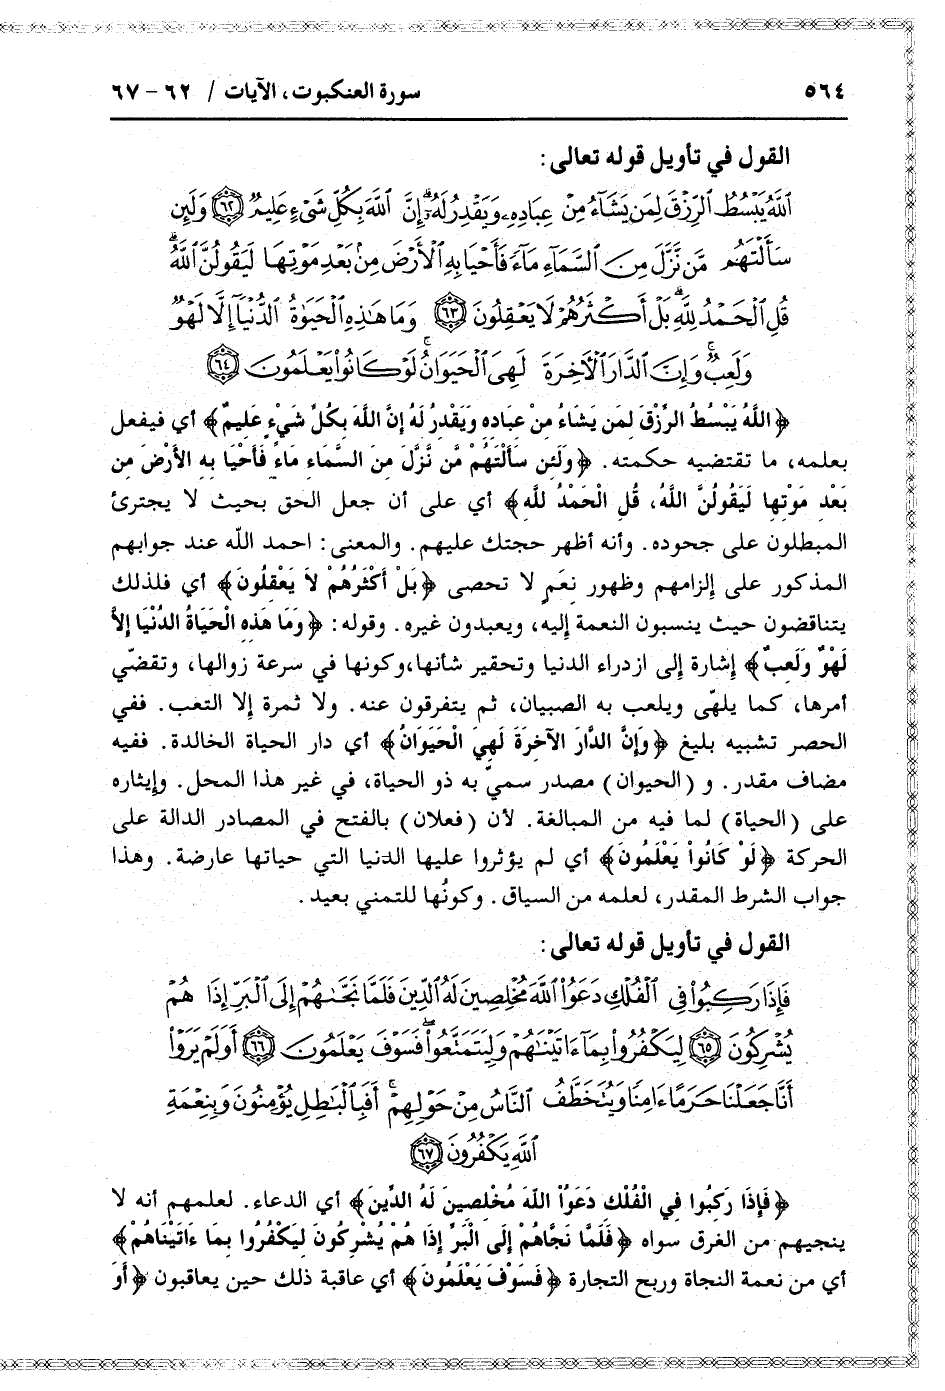 ٥٦٤ سورة العنكبوت، الآيات / ٦٢ - ٦٧
القول في تأويل قوله تعالى:
ٱللَّهُ يَبۡسُطُ ٱلرِّزۡقَ لِمَن يَشَآءُ مِنۡ عِبَادِهِۦ وَيَقۡدِرُ لَهُۥٓۚ إِنَّ ٱللَّهَ بِكُلِّ شَىۡءٍ عَلِيمٞ ٦٢ وَلَئِن
سَأَلۡتَهُم مَّن نَّزَّلَ مِنَ ٱلسَّمَآءِ مَآءٗ فَأَحۡيَا بِهِ ٱلۡأَرۡضَ مِنۢ بَعۡدِ مَوۡتِهَا لَيَقُولُنَّ ٱللَّهُۚ
قُلِ ٱلۡحَمۡدُ لِلَّهِۚ بَلۡ أَكۡثَرُهُمۡ لَا يَعۡقِلُونَ ٦٣ وَمَا هَٰذِهِ ٱلۡحَيَوٰةُ ٱلدُّنۡيَآ إِلَّا لَهۡوٞ
وَلَعِبٞۚ وَإِنَّ ٱلدَّارَ ٱلۡأٓخِرَةَ لَهِىَ ٱلۡحَيَوَانُۚ لَوۡ كَانُواْ يَعۡلَمُونَ ٦٤
﴿اللَّهُ يَبْسُطُ الرِّزْقَ لِمَن يَشَاءُ مِنْ عِبَادِهِ وَيَقْدِرُ لَهُ إِنَّ اللَّهَ بِكُلِّ شَيْءٍ عَلِيمٌ﴾ أي فيفعل
بعلمه، ما تقتضيه حكمته. ﴿وَلَئِن سَأَلْتَهُمْ مَّن نَّزَّلَ مِنَ السَّمَاءِ مَاءً فَأَحْيَا بِهِ الأَرْضَ مِن
بَعْدِ مَوْتِهَا لَيَقُولُنَّ اللَّهُ، قُلِ الْحَمْدُ للَّهِ﴾ أي على أن جعل الحق بحيث لا يجترئ
المبطلون على جحوده. وأنه أظهر حجتك عليهم. والمعنى: احمد اللّه عند جوابهم
المذكور على إلزامهم وظهور نِعَمٍ لا تحصى ﴿بَلْ أَكْثَرُهُمْ لاَ يَعْقِلُونَ﴾ أي فلذلك
يتناقضون حيث ينسبون النعمة إليه، ويعبدون غيره. وقوله: ﴿وَمَا هَذِهِ الْحَيَاةُ الدُّنْيَا إِلاَّ
لَهْوٌ وَلَعِبٌ﴾ إشارة إلى ازدراء الدنيا وتحقير شأنها،وكونها في سرعة زوالها، وتقضّي
أمرها، كما يلهّى ويلعب به الصبيان، ثم يتفرقون عنه. ولا ثمرة إلا التعب. ففي
الحصر تشبيه بليغ ﴿وَإِنَّ الدَّارَ الآخِرَةَ لَهِيَ الْحَيَوَانُ﴾ أي دار الحياة الخالدة. ففيه
مضاف مقدر. و (الحيوان) مصدر سميّ به ذو الحياة، في غير هذا المحل. وإيثاره
على (الحياة) لما فيه من المبالغة. لأن (فعلان) بالفتح في المصادر الدالة على
الحركة ﴿لَوْ كَانُواْ يَعْلَمُونَ﴾ أي لم يؤثروا عليها الدنيا التي حياتها عارضة. وهذا
جواب الشرط المقدر، لعلمه من السياق. وكونُها للتمني بعيد.
القول في تأويل قوله تعالى:
فَإِذَا رَكِبُواْ فِي ٱلۡفُلۡكِ دَعَوُاْ ٱللَّهَ مُخۡلِصِينَ لَهُ ٱلدِّينَ فَلَمَّا نَجَّىٰهُمۡ إِلَى ٱلۡبَرِّ إِذَا هُمۡ
يُشۡرِكُونَ ٦٥ لِيَكۡفُرُواْ بِمَآ ءَاتَيۡنَٰهُمۡ وَلِيَتَمَتَّعُواْۖ فَسَوۡفَ يَعۡلَمُونَ ٦٦ أَوَلَمۡ يَرَوۡاْ
أَنَّا جَعَلۡنَا حَرَمًا ءَامِنٗا وَيُتَخَطَّفُ ٱلنَّاسُ مِنۡ حَوۡلِهِمۡۚ أَفَبِٱلۡبَٰطِلِ يُؤۡمِنُونَ وَبِنِعۡمَةِ
ٱللَّهِ يَكۡفُرُونَ ٦٧
﴿فَإِذَا رَكِبُوا فِي الْفُلْكِ دَعَوُاْ اللَّهَ مُخْلِصِينَ لَهُ الدِّينَ﴾ أي الدعاء. لعلمهم أنه لا
ينجيهم من الغرق سواه ﴿فَلَمَّا نَجَّاهُمْ إِلَى الْبَرِّ إِذَا هُمْ يُشْرِكُونَ لِيَكْفُرُوا بِمَا ءَاتَيْنَاهُمْ﴾
أي من نعمة النجاة وربح التجارة ﴿فَسَوْفَ يَعْلَمُونَ﴾ أي عاقبة ذلك حين يعاقبون ﴿أَوَ